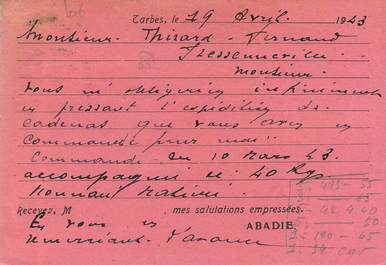 Tarbes, le 19 Avril. 1943
Monsieur. Thirard - Fernand
Fressenneville.
Monsieur.
Vous m'obligeriez infiniment
en pressant l'expédition des
cadenas que vous avez en
Commande pour moi
Commande du 10 Mars 43.
accompagnée de 40 Kgs
Monnaie Matière.
Recevez, M mes salutations empressées.
En vous en ABADIE
remerciant d'avance